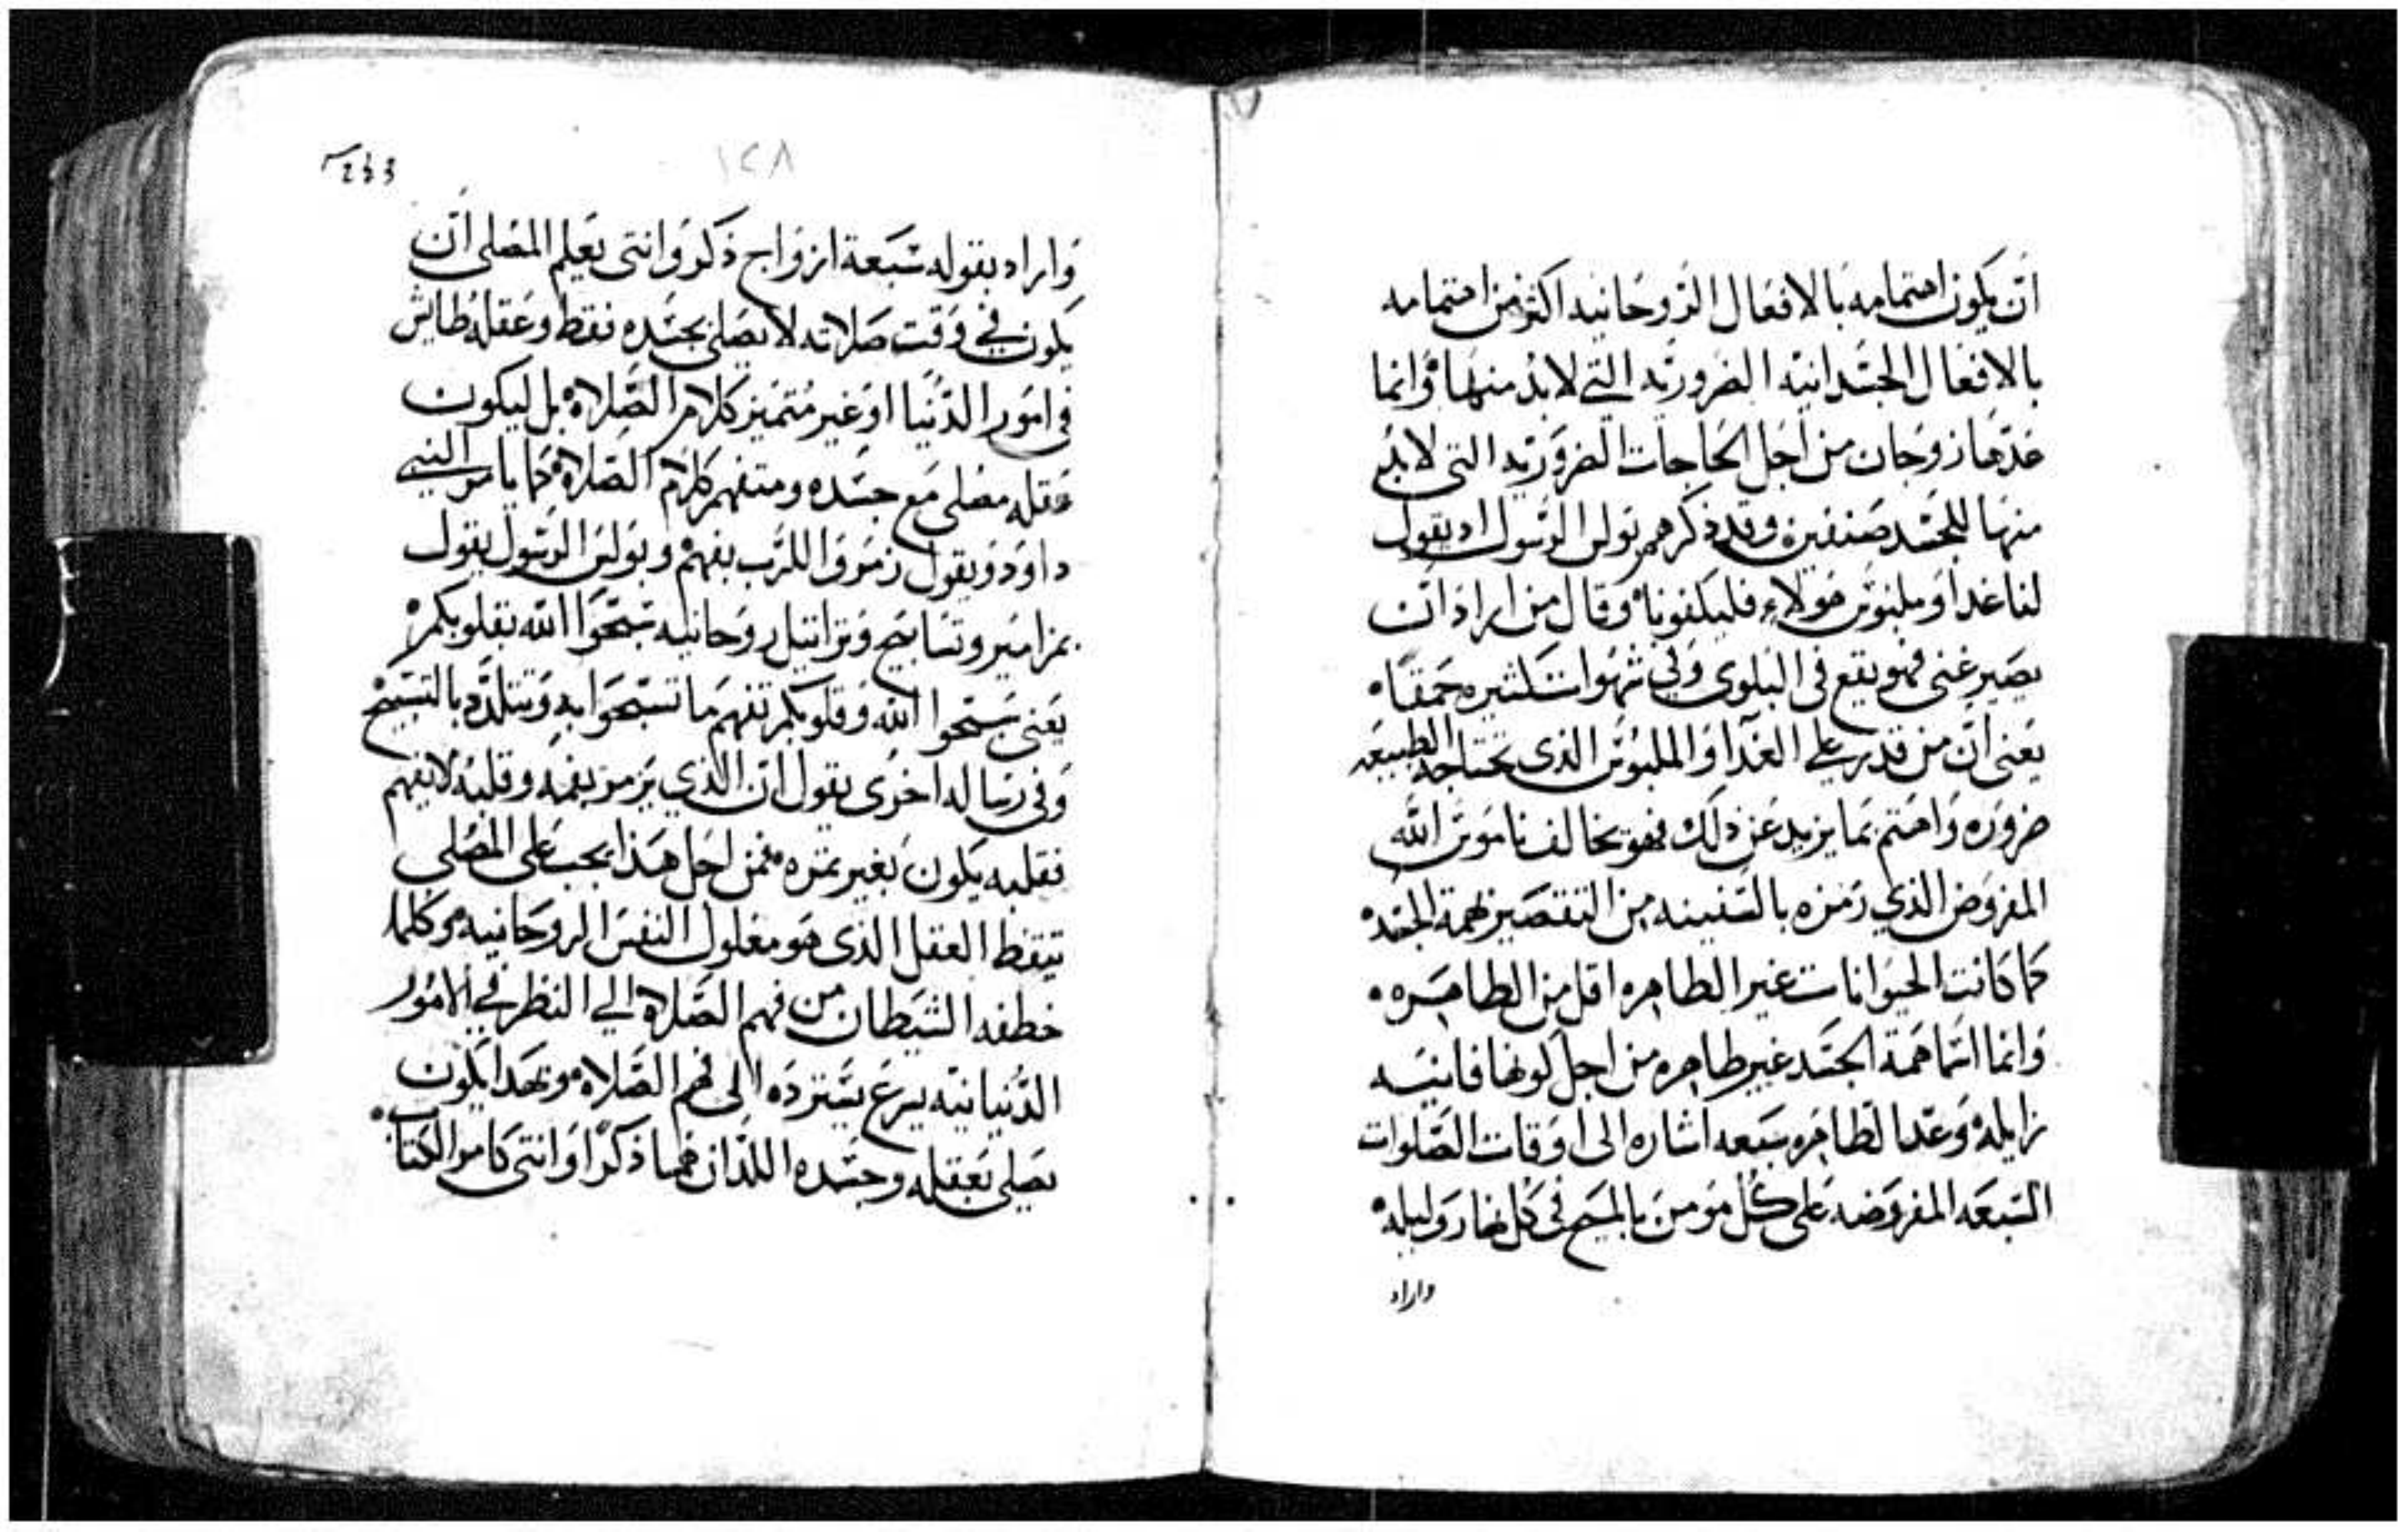 ان يكون اهتمامه بالافعال الروحانيه اكثر من اهتمامه
بالافعال الجسدانيه الضروريه التي لابد منها وانما
عدها زوجان من اجل الحاجات الضروريه التي لابد
منها للجسد صنفين وقد ذكرهم بولس الرسول اد يقول
لنا غدا وملبوس هولاء فليكفونا وقال من اراد ان
يصير غني فهو يقع في البلوي وفي شهوات كثيره حمقا
يعني ان من قدر علي الغدا والملبوس الذي تحتاجه الطبيعه
ضروره واهتم بما يزيد عن ذلك فهو يخالف ناموس الله
المفروض الذي رمزه بالسفينه من التقصير بهمة الجسد
كما كانت الحيوانات غير الطاهره اقل من الطاهره
وانما اسما همة الجسد غير طاهره من اجل كونها فانيه
زايله وعد الطاهره سبعه اشاره الى اوقات الصلوات
السبعه المفروضه على كل مومن بالمسيح في كل نهار وليله
واراد
١٢٨
واراد بقوله سبعة ازواج ذكر وانثى يعلم المصلي ان
يكون في وقت صلاته لا يصلي بجسده فقط وعقله طايش
في امور الدنيا او غير متميز كلام الصلاه بل ليكون
عقله مصلي مع جسده ومتفهم كلام الصلاه كما يامر النبي
داوود ويقول زمروا للرب بفهم وبولس الرسول يقول
بمزامير وتسابيح وتراتيل روحانيه سبحوا الله بقلوبكم
يعني سبحوا الله وقلوبكم تفهم ما تسبحوا به وتتلذد بالتسبيح
وفي رساله اخرى يقول ان الذي يزمر بفمه وقلبه لا يفهم
فقلبه يكون بغير ثمره فمن اجل هذا يجب على المصلي
تيقظ العقل الذي هو معلول النفس الروحانيه وكلما
خطفه الشيطان من فهم الصلاه الي النظر في الامور
الدنيانيه يسرع يسترده الى فهم الصلاه وبهدا يكون
يصلي بعقله وجسده اللذان هما ذكرا وانثى كامر الكتاب